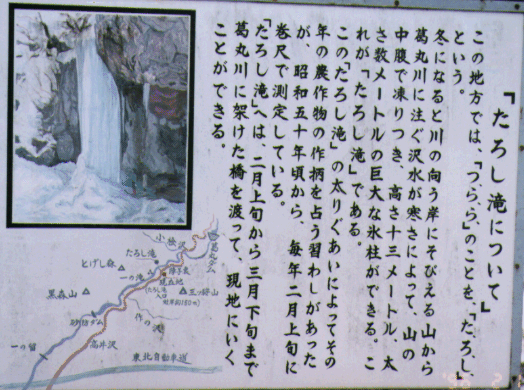 『たろし滝について』
この地方では、「つらら」のことを、「たろし」
という。
冬になると川の向う岸にそびえる山から
葛丸川に注ぐ沢水が寒さによって、山の
中腹で凍りつき、高さ十三メートル、太
さ数メートルの巨大な氷柱ができる。こ
れが、「たろし滝」である。
この「たろし滝」の太りぐあいによってその
年の農作物の作柄を占う習わしがあった
が、昭和五十年頃から、毎年二月上旬に
巻尺で測定している。
「たろし滝」へは、二月上旬から三月下旬まで、
葛丸川に架けた橋を渡って、現地にいく
ことができる。
葛丸ダム
たろし滝
とげし森
一の滝
現在地
五ッ森山
黒森山
砂防ダム
一の留
高井沢
東北自動車道